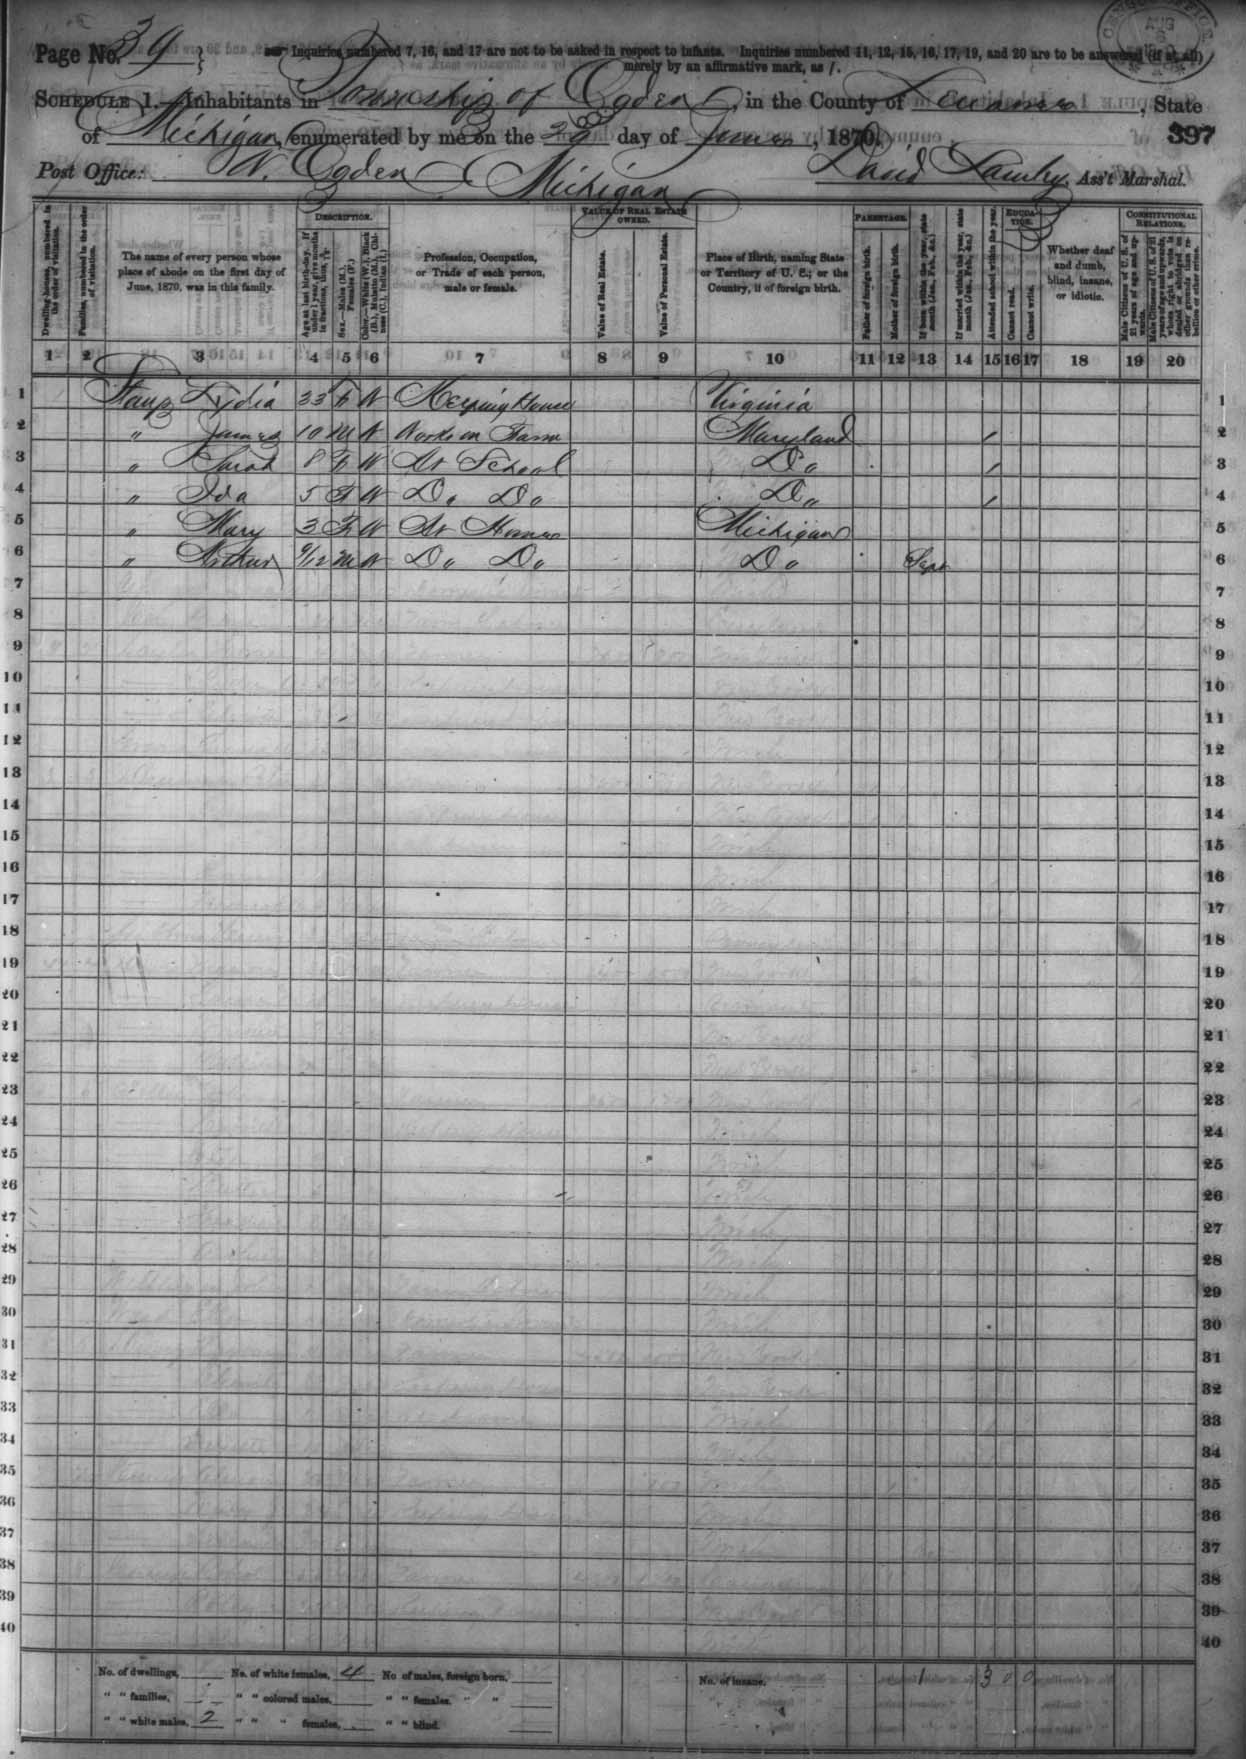 Page No. 39 } Inquiries numbered 7, 16, and 17 are not to be asked in respect to infants. Inquiries numbered 11, 12, 15, 16, 17, 19, and 20 are to be answered (if at all)
merely by an affirmative mark, as /.
CENSUS OFFICE
AUG
SCHEDULE 1.—Inhabitants in Township of Ogden, in the County of Lenawee, State
of Michigan, enumerated by me on the 29 day of June, 1870.
397
Post Office: N. Ogden Michigan David, Ass't Marshal.
DESCRIPTION. VALUE OF REAL ESTATE OWNED. PARENTAGE. EDUCATION. CONSTITUTIONAL RELATIONS.
Dwelling-houses, numbered in the order of visitation.
Families, numbered in the order of visitation.
The name of every person whose place of abode on the first day of June, 1870, was in this family.
Age at last birth-day. If under 1 year, give months in fractions, thus
Sex.—Males (M.), Females (F.)
Color.—White (W.), Black (B.), Mulatto (M.), Chinese (C.), Indian (I.)
Profession, Occupation, or Trade of each person, male or female.
Value of Real Estate.
Value of Personal Estate.
Place of Birth, naming State or Territory of U. S.; or the Country, if of foreign birth.
Father of foreign birth.
Mother of foreign birth.
If born within the year, state month (Jan., Feb., &c.)
If married within the year, state month (Jan., Feb., &c.)
Attended school within the year.
Cannot read.
Cannot write.
Whether deaf and dumb, blind, insane, or idiotic.
Male Citizens of U. S. of 21 years of age and upwards.
Male Citizens of U. S. of 21 years of age and upwards, whose right to vote is denied or abridged on other grounds than rebellion or other crime.
1 2 3 4 5 6 7 8 9 10 11 12 13 14 15 16 17 18 19 20
1 Lydia 33 F W Keeping House Virginia 1
2 " James 10 M W Works on Farm Maryland / 2
3 " Sarah 8 F W At School Do / 3
4 " Ida 5 F W Do Do Do / 4
5 " Mary 3 F W At Home Michigan 5
6 " Arthur 9/12 M W Do Do Do Sept 6
7 7
8 8
9 9
10 10
11 11
12 12
13 13
14 14
15 15
16 16
17 17
18 18
19 19
20 20
21 21
22 22
23 23
24 24
25 25
26 26
27 27
28 28
29 29
30 30
31 31
32 32
33 33
34 34
35 35
36 36
37 37
38 38
39 39
40 40
No. of dwellings, No. of white females, 4 No. of males, foreign born, No. of insane, 1 3 0 0
" " families, " " colored males, " " females, " "
" " white males, 2 " " " females, " " blind.